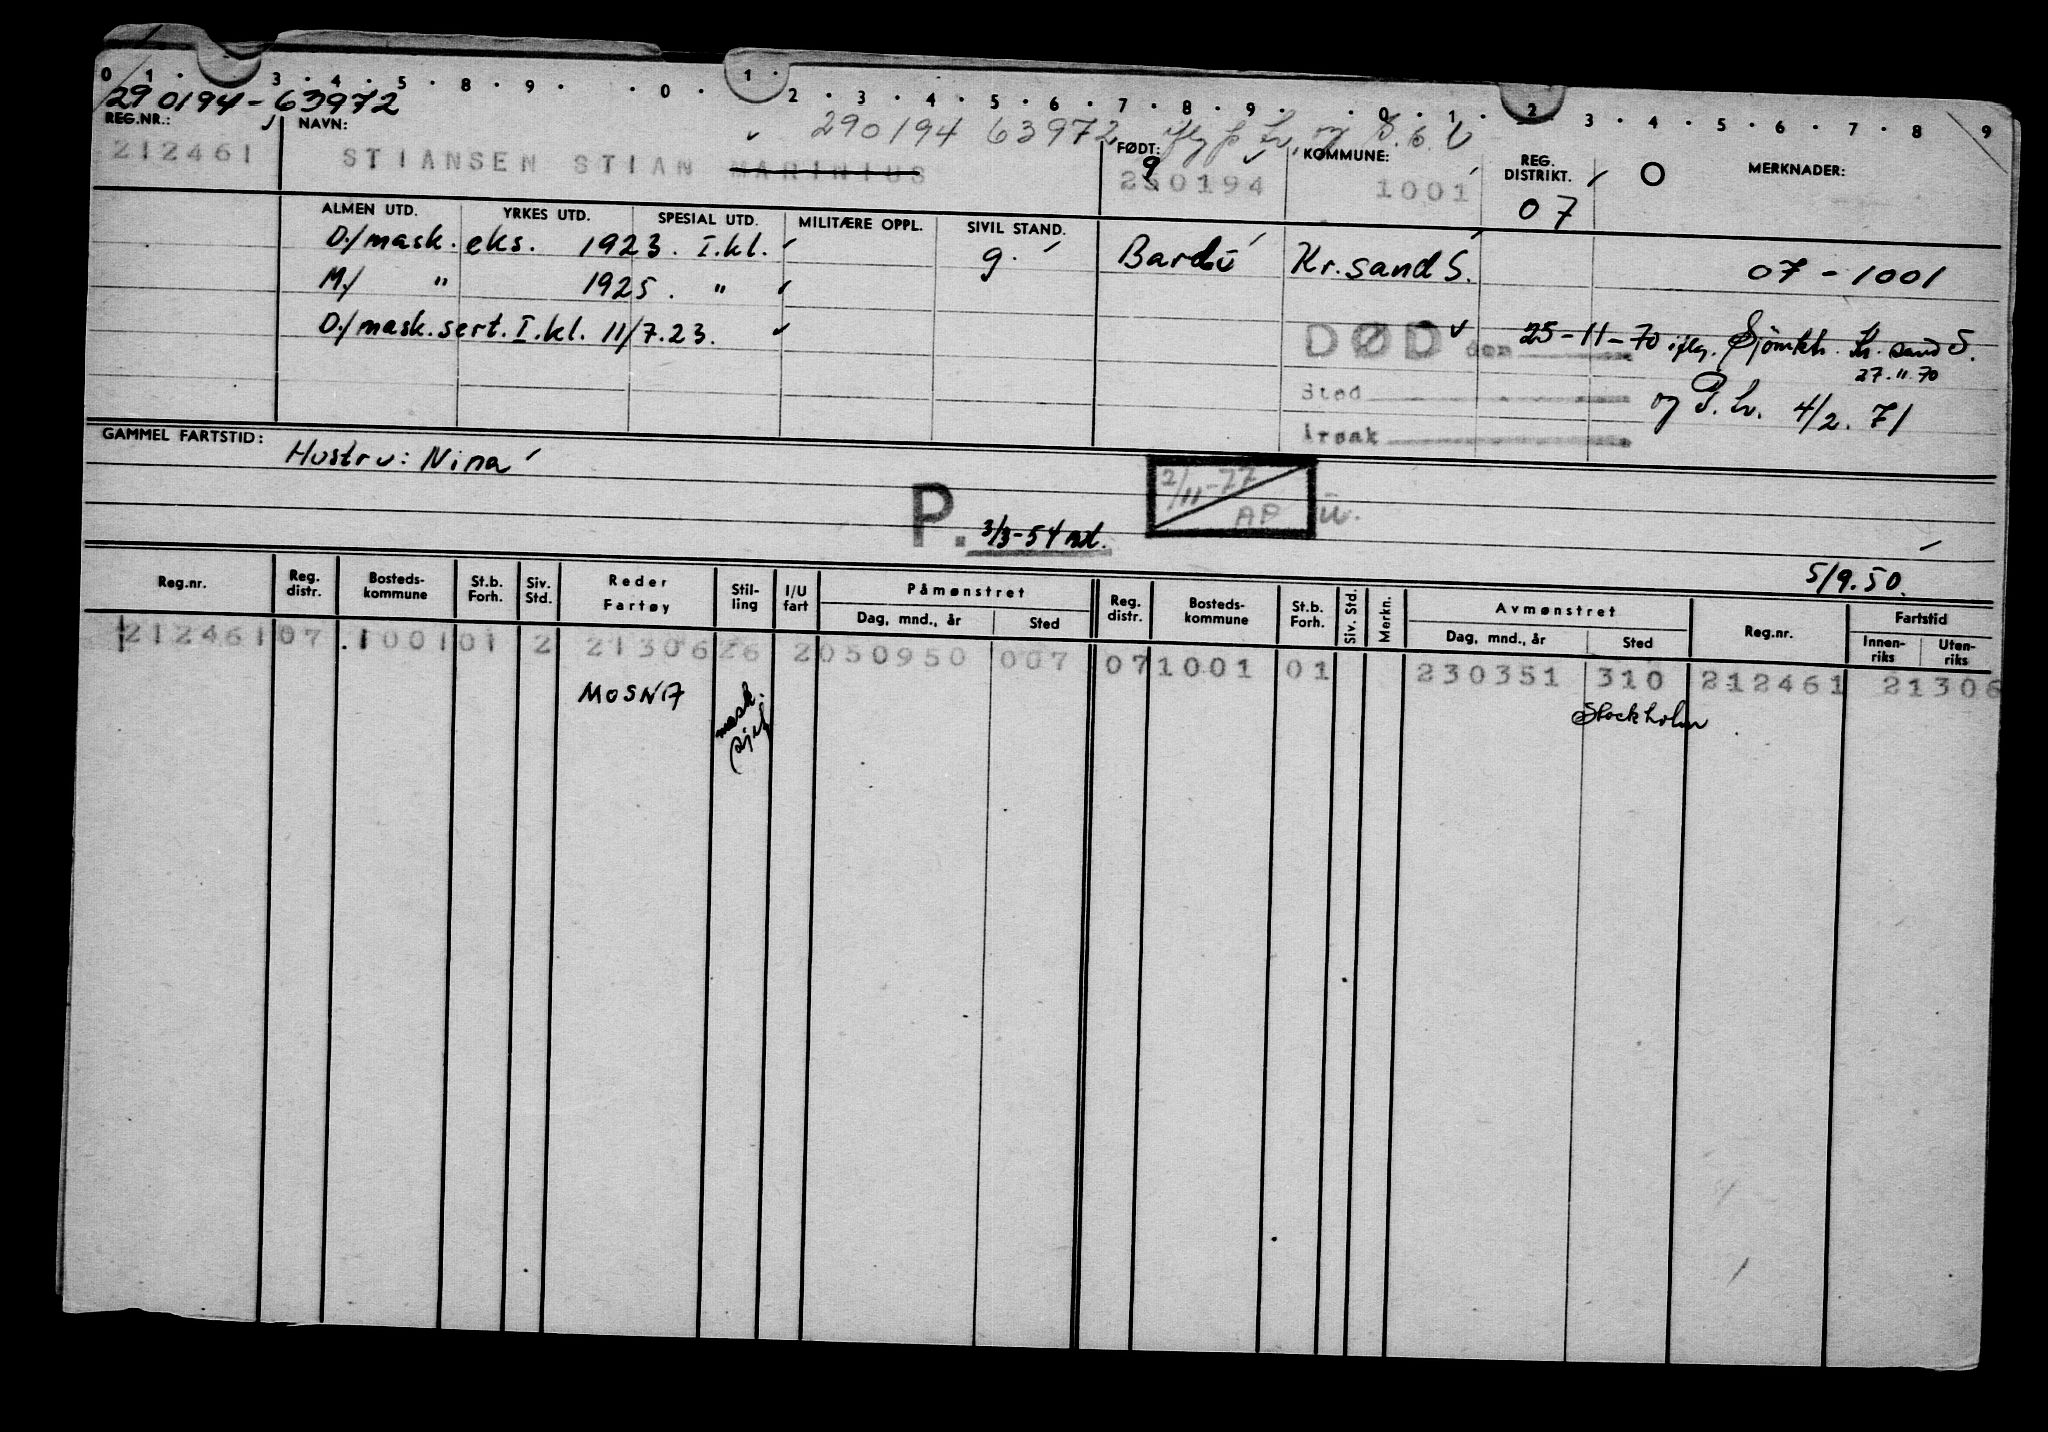 0 1 · 3 · 4 · 5 · 8 · 9 · · 0 · 1 · 2 · 3 · 4 · 5 · 6 · 7 · 8 · 9 · · 0 · 1 · 2 3 · 4 · 5 · 6 · 7 · 8 9
290194-63972
290194 63972 og
REG.NR.: NAVN: FØDT: KOMMUNE: REG. DISTRIKT. O MERKNADER:
212461 STIANSEN STIAN MARINIUS 290194 1001 07
ALMEN UTD. YRKES UTD. SPESIAL UTD. MILITÆRE OPPL. SIVIL STAND.
D./mask. eks. 1923. I.kl. g. Bardu Kr.sand S. 07-1001
M./ " 1925. "
D./mask.sert. I.kl. 11/7.23.
DØD den 25-11-70 iflg. Sjömkt. Kr. sand S.
27.11.70
Sted og P. Lv. 4/2. 71
Årsak
GAMMEL FARTSTID: Hustru: Nina
2/11-77
P. 3/3-54 AP
5/9.50.
Reg.nr. Reg. distr. Bosteds-kommune St.b. Forh. Siv. Std. Reder Fartøy Stil-ling I/U fart Påmønstret Dag, mnd., år Sted Reg. distr. Bosteds-kommune St.b. Forh. Siv. Std. Merkn. Avmønstret Dag, mnd., år Sted Reg.nr. Fartstid Innen-riks Uten-riks
212461 07 1001 01 2 21306 26 2 050950 007 07 1001 01 230351 310 212461 21306
MOSNA mask. sjef Stockholm